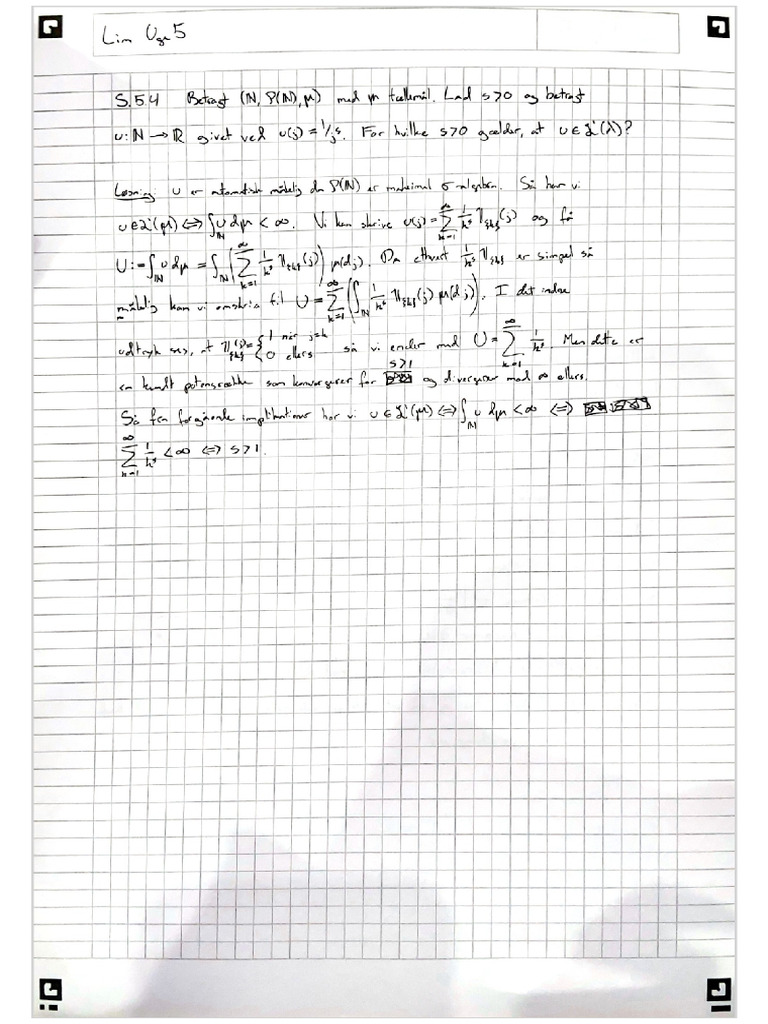 Lim Uge 5
S.5.4 Betragt (ℕ, P(ℕ), μ) med μ tællemål. Lad s>0 og betragt
u: ℕ → ℝ givet ved u(j) = 1/j^s. For hvilke s>0 gælder, at u ∈ L¹(λ)?
Løsning: u er automatisk målelig da P(ℕ) er maksimal σ-algebra. Så har vi
u ∈ L¹(μ) ⟺ ∫_ℕ u dμ < ∞. Vi kan skrive u(j) = ∑_{k=1}^∞ 1/k^s 𝟙_{k}(j) og få
U := ∫_ℕ u dμ = ∫_ℕ (∑_{k=1}^∞ 1/k^s 𝟙_{k}(j)) μ(dj). Da ethvert 1/k^s 𝟙_{k} er simpel så
målelig kan vi omskrive til U = ∑_{k=1}^∞ (∫_ℕ 1/k^s 𝟙_{k}(j) μ(dj)). I det indre
udtryk ses, at 𝟙_{k}(j) = { 1 når j=k 0 ellers så vi ender med U = ∑_{k=1}^∞ 1/k^s. Men dette er
en kendt potensrække som konvergerer for s>1 og divergerer mod ∞ ellers.
Så fra foregående implikationer har vi u ∈ L¹(μ) ⟺ ∫_ℕ u dμ < ∞ ⟺
∑_{k=1}^∞ 1/k^s < ∞ ⟺ s>1.